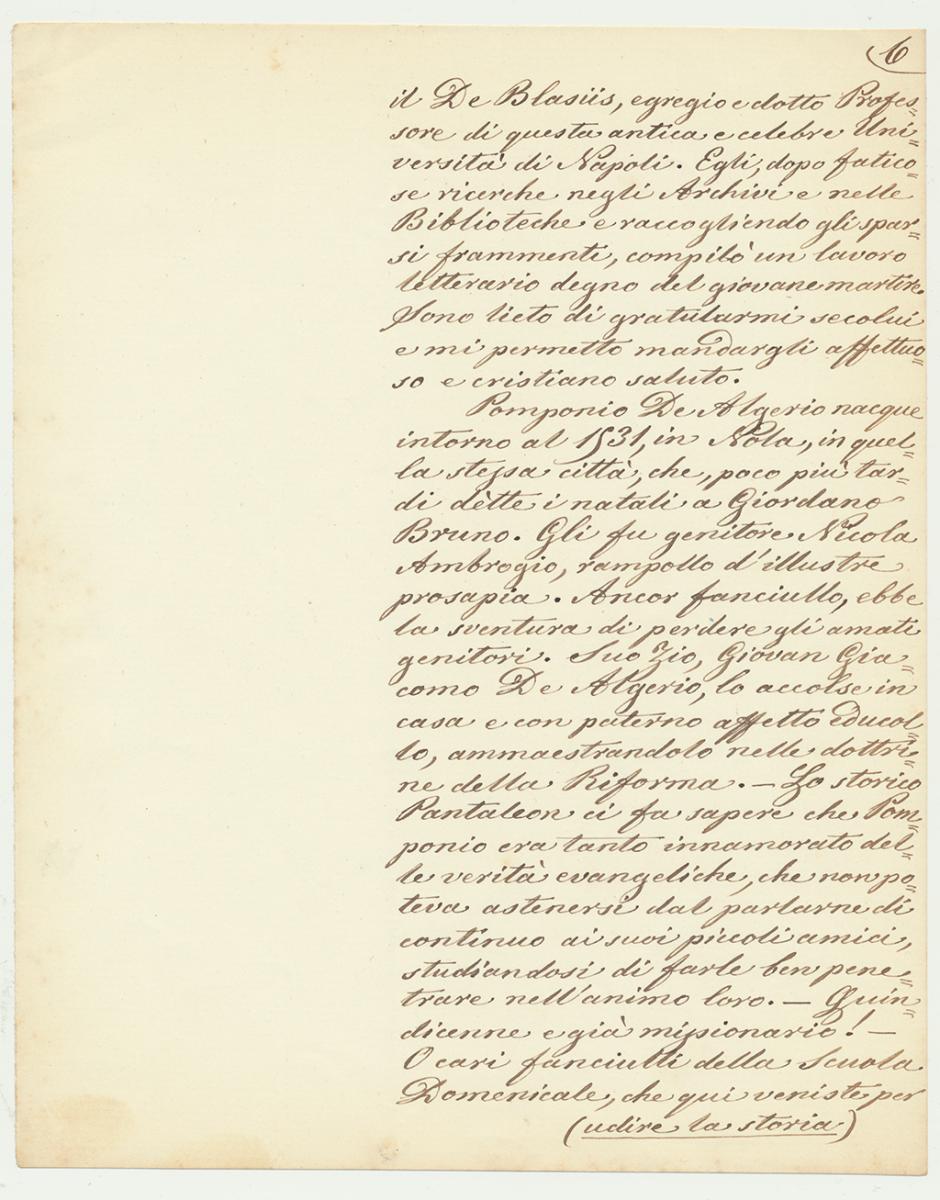 6
il De Blasiis, egregio e dotto Profes=
sore di questa antica e celebre Uni=
versità di Napoli. Egli, dopo fatico=
se ricerche negli Archivi e nelle
Biblioteche e raccogliendo gli spar=
si frammenti, compilò un lavoro
letterario degno del giovane martire.
Sono lieto di gratularmi secolui
e mi permetto mandargli affettuo=
so e cristiano saluto.
Pomponio De Algerio nacque
intorno al 1531, in Nola, in quel=
la stessa città, che, poco più tar=
di dètte i natali a Giordano
Bruno. Gli fu genitore Nicola
Ambrogio, rampollo d'illustre
prosapia. Ancor fanciullo, ebbe
la sventura di perdere gli amati
genitori. Suo Zio, Giovan Gia=
como De Algerio, lo accolse in
casa e con paterno affetto educol=
lo, ammaestrandolo nelle dottri=
ne della Riforma. — Lo storico
Pantaleon ci fa sapere che Pom=
ponio era tanto innamorato del=
le verità evangeliche, che non po=
teva astenersi dal parlarne di
continuo ai suoi piccoli amici,
studiandosi di farle ben pene=
trare nell'animo loro. — Quin=
dicenne e già missionario! —
O cari fanciulli della Scuola
Domenicale, che qui veniste per
(udire la storia)